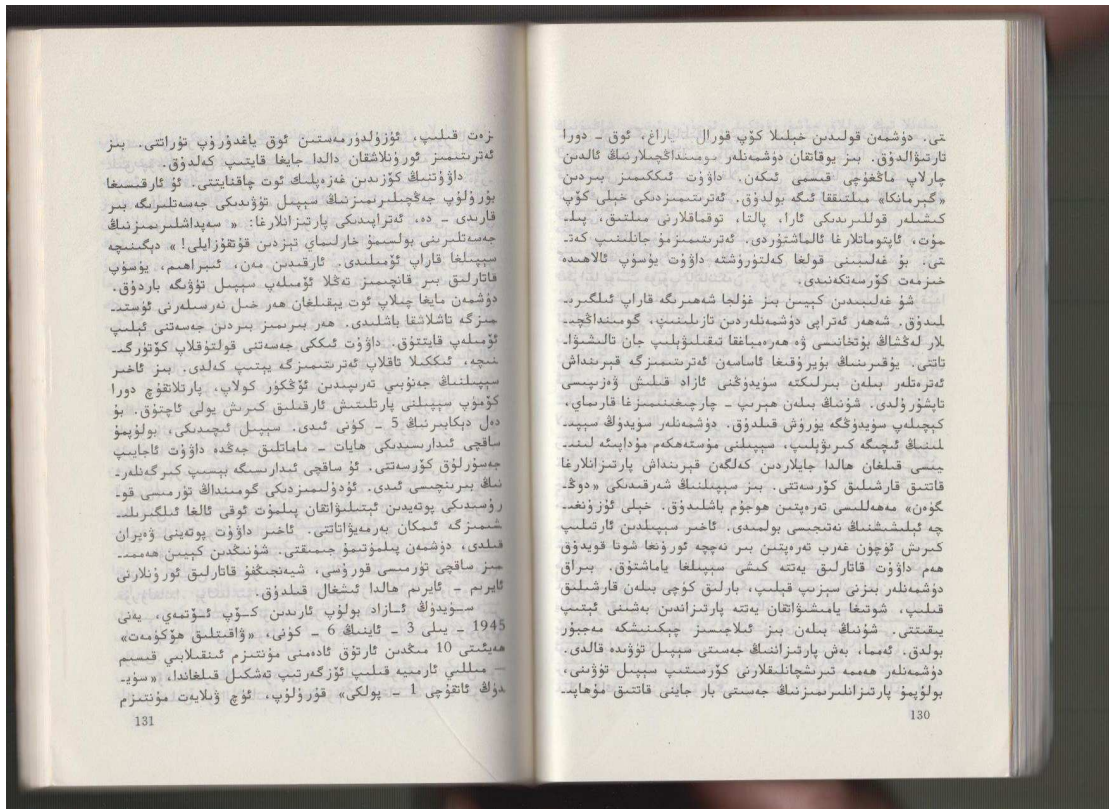 تى. دۈشمەن قولىدىن خېلىلا كۆپ قورال ـ ياراغ، ئوق ـ دورا
تارتىۋالدۇق. بىز يوقاتقان دۈشمەنلەر گومىنداڭچىلارنىڭ ئالدىن
چارلاپ ماڭغۇچى قىسمى ئىكەن. داۋۇت ئىككىمىز بىردىن
«گېرمانكا» مىلتىققا ئىگە بولدۇق. ئەترىتىمىزدىكى خېلى كۆپ
كىشىلەر قوللىرىدىكى ئارا، پالتا، توقماقلارنى مىلتىق، پىلـ
مۇت، ئاپتوماتلارغا ئالماشتۇردى. ئەترىتىمىزمۇ جانلىنىپ كەتـ
تى. بۇ غەلىبىنى قولغا كەلتۈرۈشتە داۋۇت يۈسۈپ ئالاھىدە
خىزمەت كۆرسەتكەنىدى.
شۇ غەلىبىدىن كېيىن بىز غۇلجا شەھىرىگە قاراپ ئىلگىرىـ
لىدۇق. شەھەر ئەتراپى دۈشمەنلەردىن تازىلىنىپ، گومىنداڭچىـ
لار لەڭشاڭ بۇتخانىسى ۋە ھەرەمباغقا تىقىلىۋېلىپ جان تالىشىۋاـ
تاتتى. يۇقىرىنىڭ بۇيرۇقىغا ئاساسەن ئەترىتىمىزگە قېرىنداش
ئەترەتلەر بىلەن بىرلىكتە سۈيدۈڭنى ئازاد قىلىش ۋەزىپىسى
تاپشۇرۇلدى. شۇنىڭ بىلەن ھېرىپ ـ چارچىغىنىمىزغا قارىماي،
كېچىلەپ سۈيدۈڭگە يۈرۈش قىلدۇق. دۈشمەنلەر سۈيدۈڭ سېپىـ
لىنىڭ ئىچىگە كىرىۋېلىپ، سېپىلنى مۇستەھكەم مۇداپىئە لىنىـ
يىسى قىلغان ھالدا جايلاردىن كەلگەن قېرىنداش پارتىزانلارغا
قاتتىق قارشىلىق كۆرسەتتى. بىز سېپىلنىڭ شەرقىدىكى «دوڭـ
گۈەن» مەھەللىسى تەرەپتىن ھوجۇم باشلىدۇق. خېلى ئۇزۇنغىـ
چە ئېلىشىشنىڭ نەتىجىسى بولمىدى. ئاخىر سېپىلدىن ئارتىلىپ
كىرىش ئۈچۈن غەرب تەرەپتىن بىر نەچچە ئورۇنغا شوتا قويدۇق
ھەم داۋۇت قاتارلىق يەتتە كىشى سېپىلغا ياماشتۇق. بىراق
دۈشمەنلەر بىزنى سېزىپ قېلىپ، بارلىق كۈچى بىلەن قارشىلىق
قىلىپ، شوتىغا يامىشىۋاتقان يەتتە پارتىزاندىن بەشىنى ئېتىپ
يىقىتتى. شۇنىڭ بىلەن بىز ئىلاجىسىز چېكىنىشكە مەجبۇر
بولدۇق. ئەمما، بەش پارتىزاننىڭ جەسىتى سېپىل تۈۋىدە قالدى.
دۈشمەنلەر ھەممە تىرىشچانلىقلارنى كۆرسىتىپ سېپىل تۈۋىنى،
بولۇپمۇ پارتىزانلىرىمىزنىڭ جەسىتى بار جاينى قاتتىق مۇھاپىـ
130
زەت قىلىپ، ئۈزۈلدۈرمەستىن ئوق ياغدۇرۇپ تۇراتتى. بىز
ئەترىتىمىز ئورۇنلاشقان دالدا جايغا قايتىپ كەلدۇق.
داۋۇتنىڭ كۆزىدىن غەزەپلىك ئوت چاقنايتتى. ئۇ ئارقىسىغا
بۇرۇلۇپ جەڭچىلىرىمىزنىڭ سېپىل تۈۋىدىكى جەسەتلىرىگە بىر
قارىدى ـ دە، ئەتراپىدىكى پارتىزانلارغا: « سەپداشلىرىمىزنىڭ
جەسەتلىرىنى بولسىمۇ خارلىماي تېزدىن قۇتقۇزايلى!» دېگىنىچە
سېپىلغا قاراپ ئۆمىلىدى. ئارقىدىن مەن، ئىبراھىم، يۈسۈپ
قاتارلىق بىر قانچىمىز تەڭلا ئۆمىلەپ سېپىل تۈۋىگە باردۇق.
دۈشمەن مايغا چىلاپ ئوت يېقىلغان ھەر خىل نەرسىلەرنى ئۈستىـ
مىزگە تاشلاشقا باشلىدى. ھەر بىرىمىز بىردىن جەسەتنى ئېلىپ
ئۆمىلەپ قايتتۇق. داۋۇت ئىككى جەسەتنى قولتۇقلاپ كۆتۈرگىـ
نىچە، ئىككىلا تاقلاپ ئەترىتىمىزگە يېتىپ كەلدى. بىز ئاخىر
سېپىلنىڭ جەنۇبىي تەرىپىدىن ئۆڭكۈر كولاپ، پارتلاتقۇچ دورا
كۆمۈپ سېپىلنى پارتلىتىش ئارقىلىق كىرىش يولى ئاچتۇق. بۇ
دەل دېكابىرنىڭ 5 ـ كۈنى ئىدى. سېپىل ئىچىدىكى، بولۇپمۇ
ساقچى ئىدارىسىدىكى ھايات ـ ماماتلىق جەڭدە داۋۇت ئاجايىپ
جەسۇرلۇق كۆرسەتتى. ئۇ ساقچى ئىدارىسىگە بېسىپ كىرگەنلەرـ
نىڭ بىرىنچىسى ئىدى. ئۇدۇلىمىزدىكى گومىنداڭ تۈرمىسى قوـ
رۇسىدىكى پوتەيدىن ئېتىلىۋاتقان پىلمۇت ئوقى ئالغا ئىلگىرىلىـ
شىمىزگە ئىمكان بەرمەيۋاتاتتى. ئاخىر داۋۇت پوتەينى ۋەيران
قىلدى، دۈشمەن پىلمۇتىمۇ جىمىقتى. شۇنىڭدىن كېيىن ھەممىـ
مىز ساقچى تۈرمىسى قورۇسى، شيەنجىڭفۇ قاتارلىق ئورۇنلارنى
ئايرىم ـ ئايرىم ھالدا ئىشغال قىلدۇق.
سۈيدۈڭ ئازاد بولۇپ ئارىدىن كۆپ ئۆتمەي، يەنى
1945 ـ يىلى 3 ـ ئاينىڭ 6 ـ كۈنى، «ۋاقىتلىق ھۆكۈمەت»
ھەيئىتى 10 مىڭدىن ئارتۇق ئادەمنى مۇنتىزىم ئىنقىلابىي قىسىم
— مىللىي ئارمىيە قىلىپ ئۆزگەرتىپ تەشكىل قىلغاندا، «سۈيـ
دۈڭ ئاتقۇچى 1 ـ پولكى» قۇرۇلۇپ، ئۈچ ۋىلايەت مۇنتىزىم
131